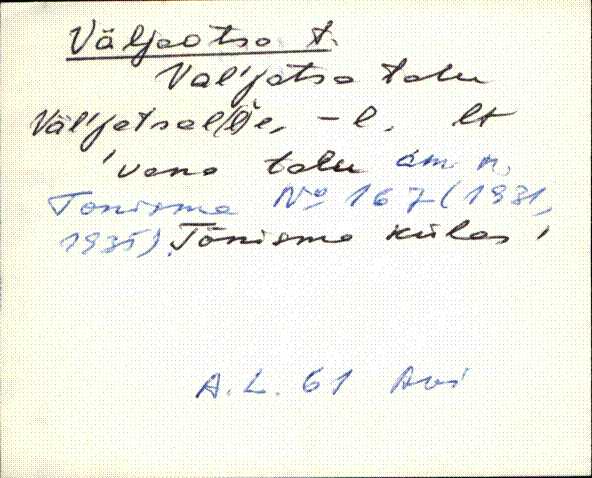 Väljaotsa t.
Val'jatsa talu
Väl'jatsal(l)e, -l, lt
'vana talu am. n.
Tonisma No 167 (1931,
1935) Tõnisma külas'
A.L. 61 Avi